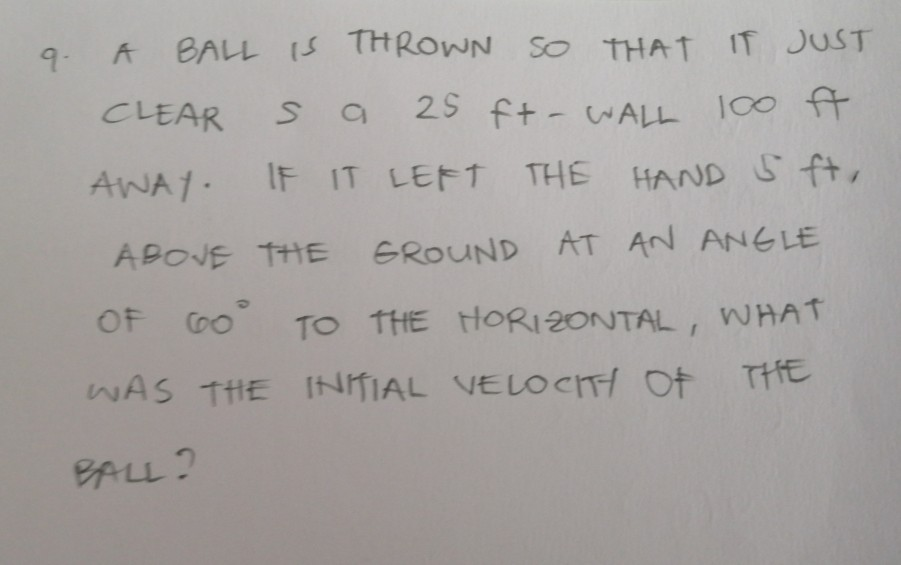 9. A BALL IS THROWN SO THAT IT JUST
CLEAR S a 25 ft - WALL 100 ft
AWAY. IF IT LEFT THE HAND 5 ft,
ABOVE THE GROUND AT AN ANGLE
OF 60° TO THE HORIZONTAL, WHAT
WAS THE INITIAL VELOCITY OF THE
BALL?